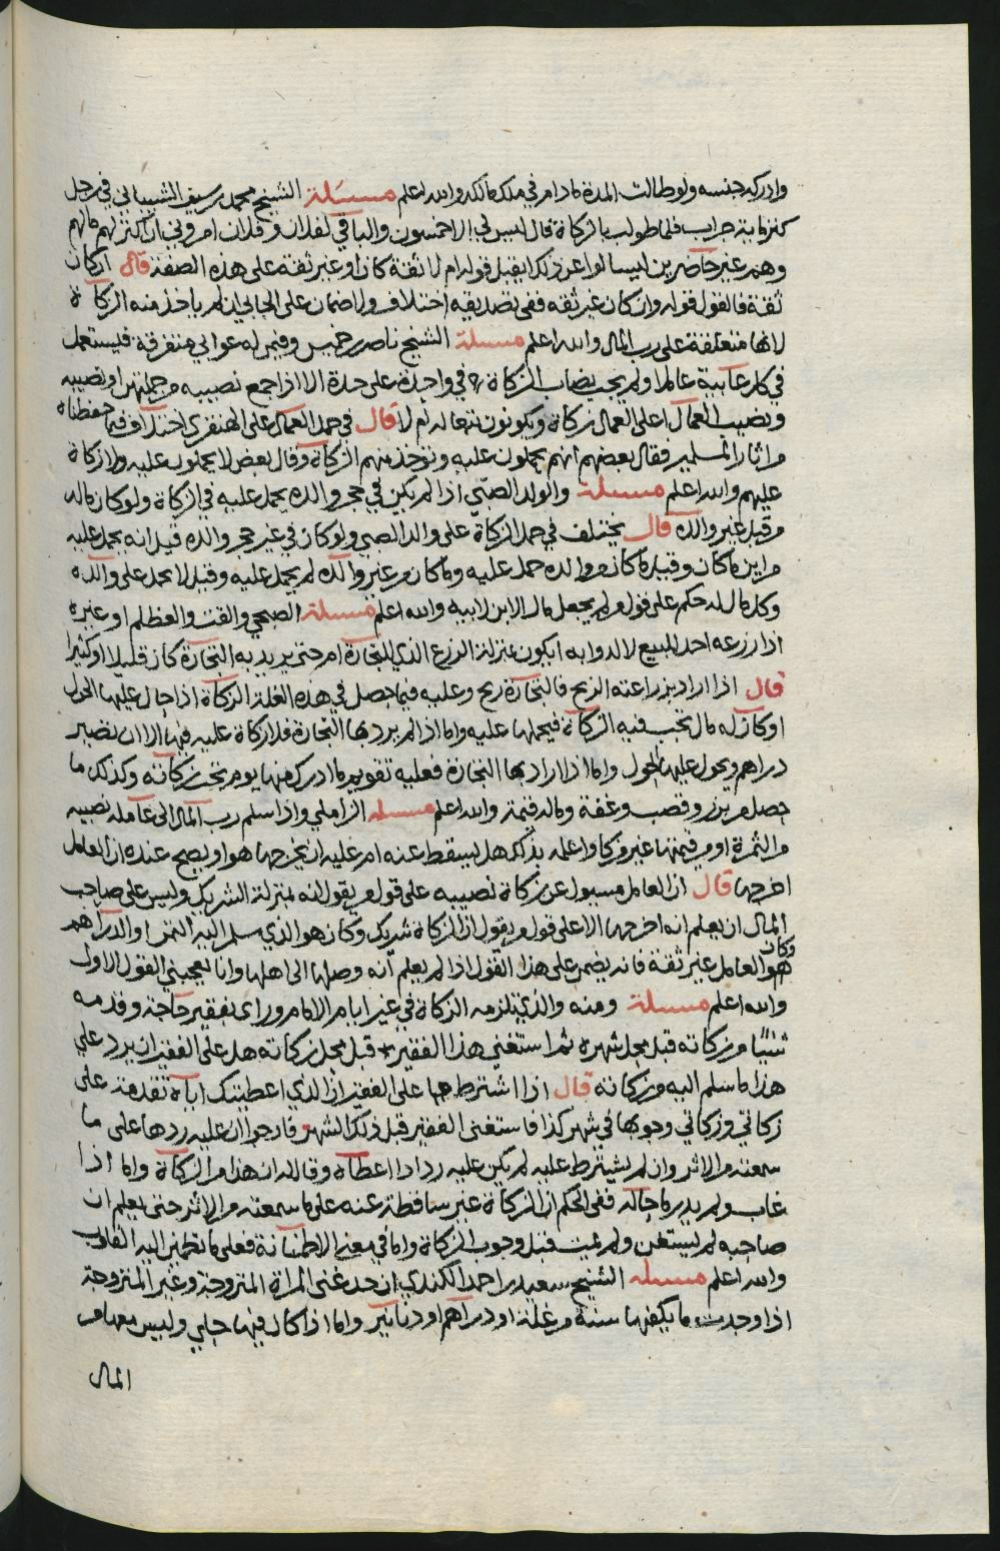 وادركه جنسه ولو طالت المدة ما دام في ملك مالكه والله اعلم مسئلة الشيخ محمد بن سيف الشيباني في رجل
كنز ماية جراب فلما طولب بالزكاة قال ليس لي الا خمسون والباقي لفلان وفلان امروني ان اكنز لهم مالهم
وهم غير حاضرين ليسالوا عن ذلك ايقبل قوله ام لا ثقة كان او غير ثقة على هذه الصفة قال ان كان
ثقة فالقول قوله وان كان غير ثقه ففي تصديقه اختلاف ولا ضمان على الجابي ان لم ياخذ منه الزكاة
لانها متعلقة على رب المال والله اعلم مسئلة الشيخ ناصر بن خميس وفيمن له عوابي متفرقة فليستعمل
في كل عابية عاملا ولم يجب نصاب الزكاة في واحدة على حدة الا اذا جمع نصيبه من جملتهن او نصيبه
ونصيب العمال اعلى العمال زكاة ويكونون تبعا له ام لا قال في حمل العمال على الهنقري اختلاف فيما حفظناه
من اثار المسلمين فقال بعضهم انهم يحملون عليه وتوخذ منهم الزكاة وقال بعض لا يحملون عليه ولا زكاة
عليهم والله اعلم مسئلة والولد الصبي اذا لم يكن في حجر والده يحمل عليه في الزكاة ولو كان ماله
من قبل غير والده قال يختلف في حمل الزكاة على والد الصبي ولو كان في غير حجر والده قيل انه يحمل عليه
من اين ما كان وقيل ما كان من والده حمل عليه وما كان من غير والده لم يحمل عليه وقيل لا يحمل على والده
وكل مال له حكم على قول من لم يجعل مال الابن لابيه والله اعلم مسئلة الصبحي والقت والعظلم او غيره
اذا زرعه احد للبيع لا لدوابه ايكون بمنزلة الزرع الذي للتجارة ام حتى يريد به التجارة كان قليلا او كثيرا
قال اذا اراد بزراعته الربح فالتجارة ربح وعليه فيما حصل في هذه الغلة الزكاة اذا حال عليها الحول
او كان له مال تجب فيه الزكاة فيحملها عليه واما اذا لم يرد بها التجارة فلا زكاة عليه فيها الا ان تصير
دراهم ويحول عليها الحول واما اذا اراد بها التجارة فعليه تقويم ما ادرك منها يوم تجب زكاته وكذلك ما
حصل من بزر وقصب وغفة وماله قيمة والله اعلم مسئله الزاملي واذا سلم رب المال الى عامله نصيبه
من الثمرة او من قيمتها غير مزكا واعلمه بذلك هل يسقط عنه ام عليه ان يخرجها هو او يصح عنده ان العامل
اخرجها قال ان العامل مسئول عن زكاة نصيبه على قول من يقول انه بمنزلة الشريك وليس على صاحب
المال ان يعلم انه اخرجها الا على قول من يقول ان الزكاة شريك وكان هو الذي سلم اليه التمر او الدراهم
وكان
هو العامل غير ثقة فانه يضمن على هذا القول اذا لم يعلم انه وصلها الى اهلها وانا يعجبني القول الاول
والله اعلم مسئلة ومنه والذي تلزمه الزكاة في غير ايام الامام وراى بفقير حاجة وقدمه
شيئا من زكاته قبل محل شهره ثم استغنى هذا الفقير قبل محل زكاته هل على الفقير ان يرد على
هذا ما سلم اليه من زكاته قال اذا اشترط بها على الفقير ان الذي اعطيتك اياه تقدمة على
زكاتي وزكاتي وجوبها في شهر كذا فاستغنى الفقير قبل ذلك الشهر فارجوا ان عليه ردها على ما
سمعته من الاثر وان لم يشترط عليه لم يكن عليه رد اذا اعطاه وقال له ان هذا من الزكاة واما اذا
غاب ولم يدر ما حاله ففي الحكم ان الزكاة غير ساقطة عنه على ما سمعته من الاثر حتى يعلم ان
صاحبه لم يستغن ولم يمت قبل وجوب الزكاة واما في معنى الاطمئنانة فعلى ما تطمئن اليه القلوب
والله اعلم مسئله الشيخ سعيد بن احمد الكندي ان حد غنى المراة المتزوجة وغير المتزوجة
اذا وجدت ما يكفيها سنة من غلة او دراهم او دنانير واما اذا كان فيها حلي وليس معها من
المال